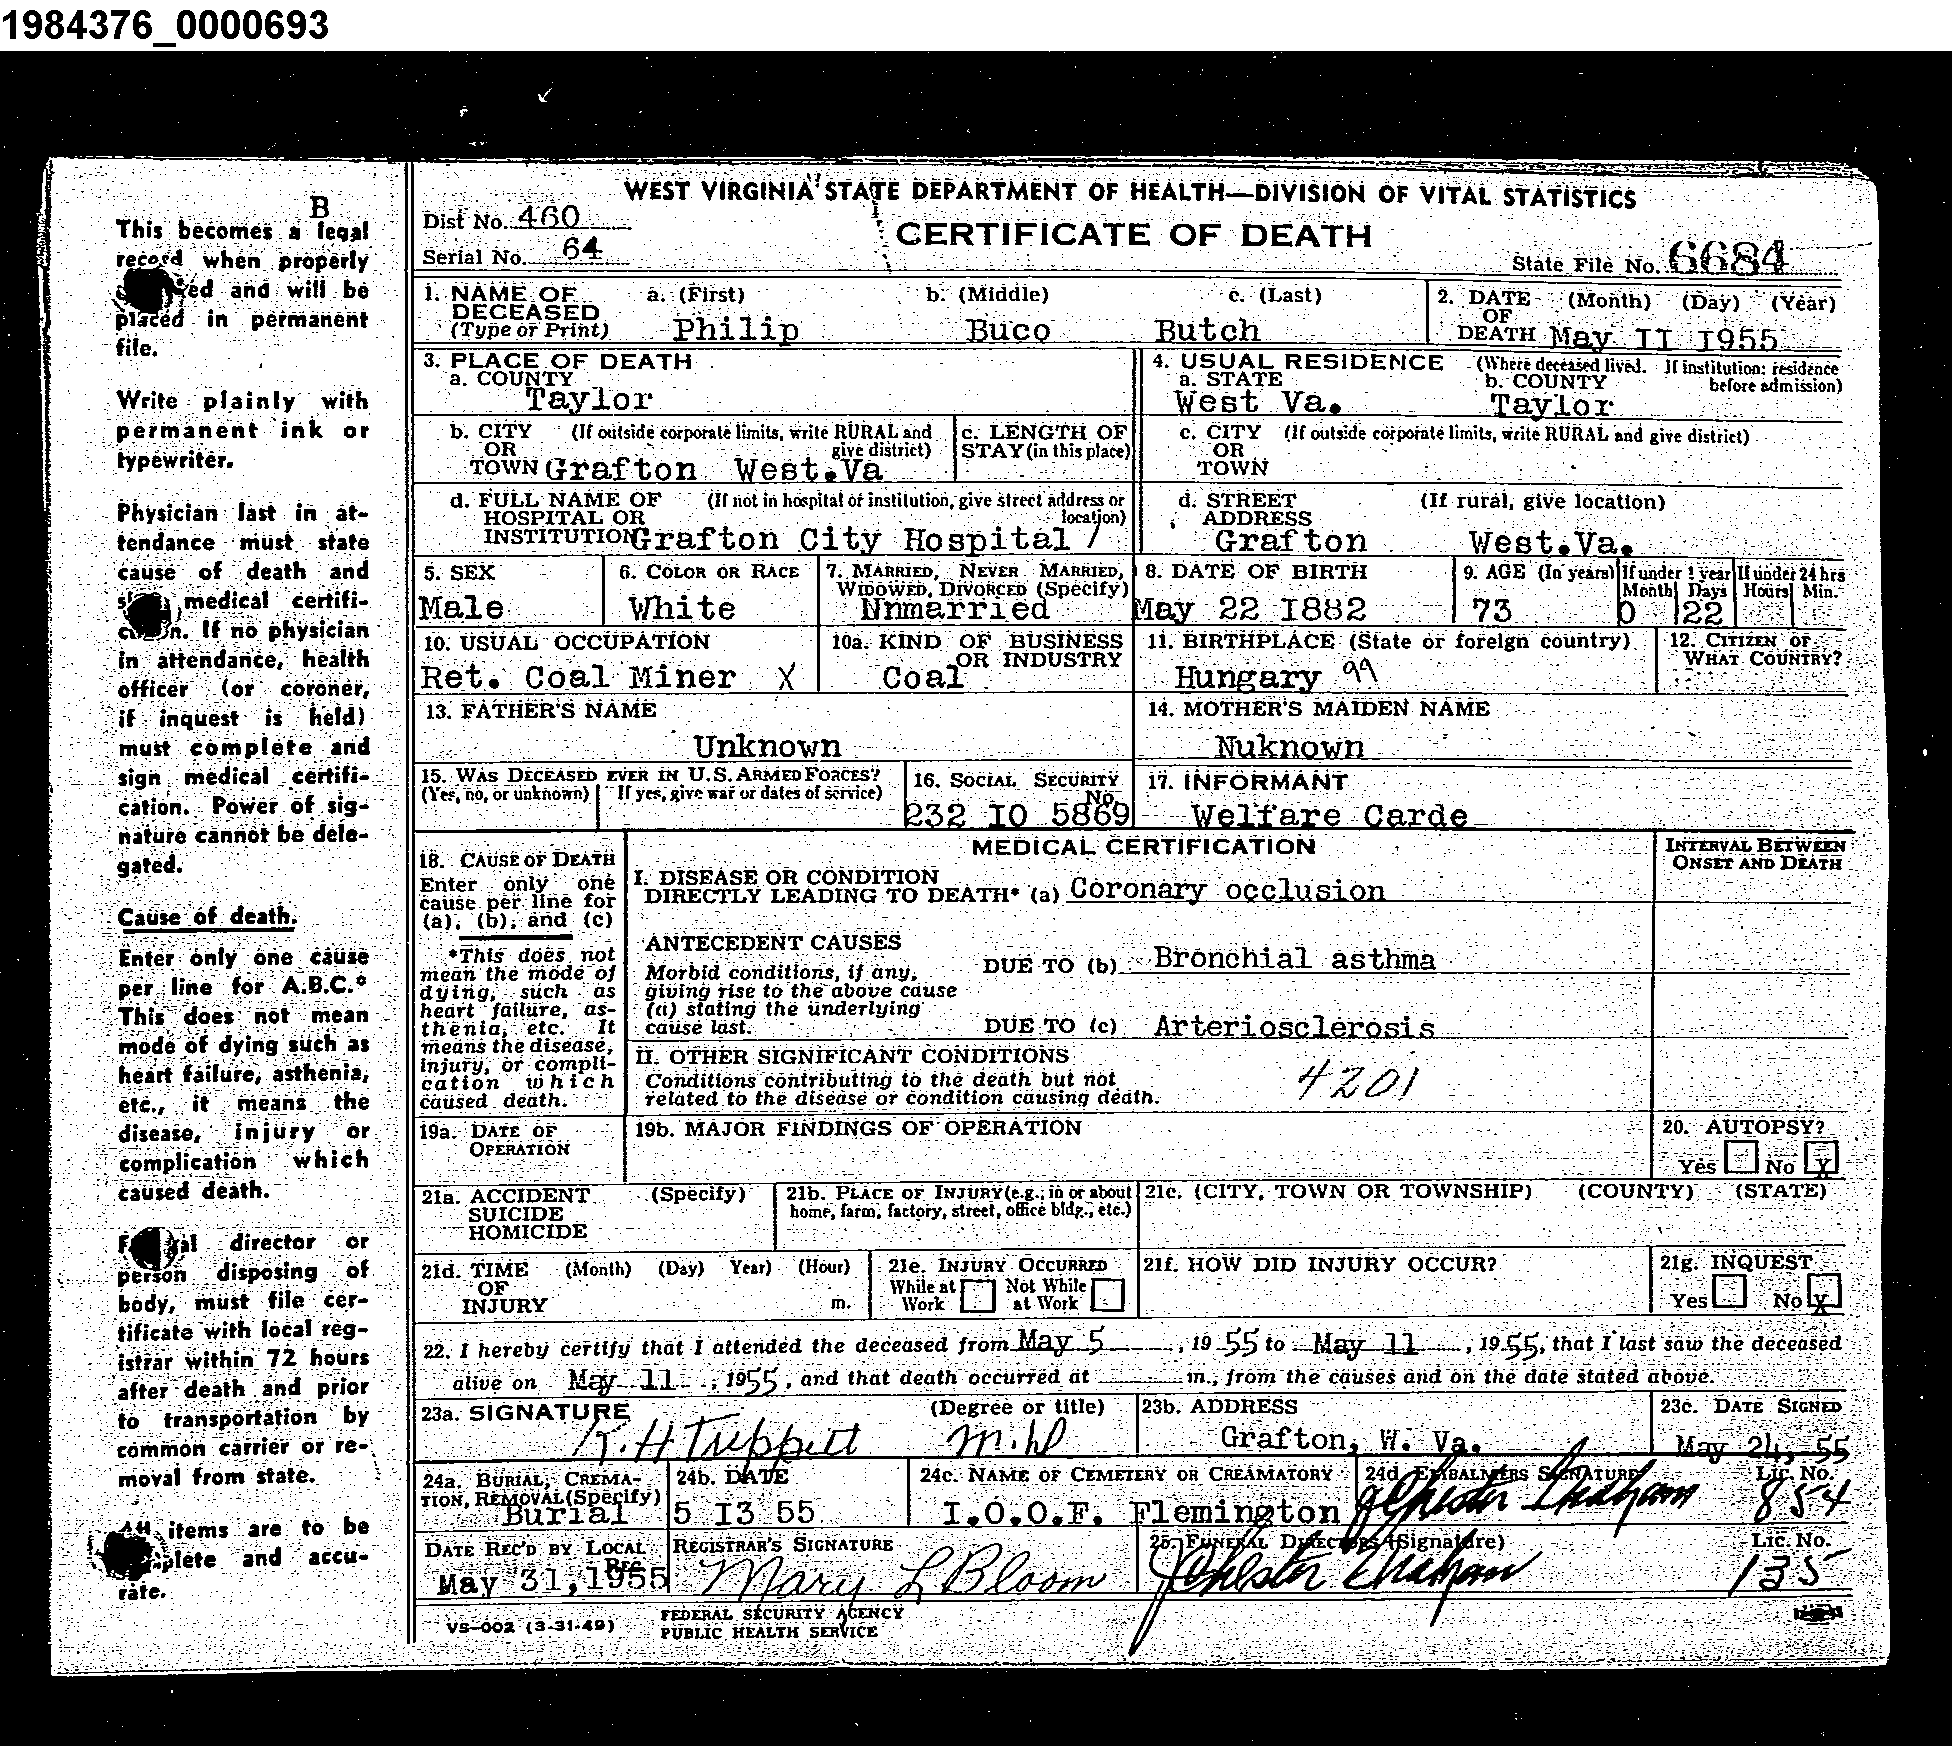 1984376_0000693
B
This becomes a legal
record when properly
and will be
placed in permanent
file.
Write plainly with
permanent ink or
typewriter.
Physician last in at-
tendance must state
cause of death and
medical certifi-
If no physician
in attendance, health
officer (or coroner,
if inquest is held)
must complete and
sign medical certifi-
cation. Power of sig-
nature cannot be dele-
gated.
Cause of death.
Enter only one cause
per line for A.B.C.*
This does not mean
mode of dying such as
heart failure, asthenia,
etc., it means the
disease, injury or
complication which
caused death.
director or
person disposing of
body, must file cer-
tificate with local reg-
istrar within 72 hours
after death and prior
to transportation by
common carrier or re-
moval from state.
All items are to be
and accu-
rate.
WEST VIRGINIA STATE DEPARTMENT OF HEALTH—DIVISION OF VITAL STATISTICS
Dist No. 460
CERTIFICATE OF DEATH
Serial No. 64
State File No. 6684
1. NAME OF DECEASED (Type or Print) a. (First) b. (Middle) c. (Last)
Philip Buco Butch
2. DATE OF DEATH (Month) (Day) (Year)
May II I955
3. PLACE OF DEATH
a. COUNTY
Taylor
4. USUAL RESIDENCE (Where deceased lived. If institution: residence before admission)
a. STATE b. COUNTY
West Va. Taylor
b. CITY OR TOWN (If outside corporate limits, write RURAL and give district)
Grafton West.Va
c. LENGTH OF STAY (in this place)
c. CITY OR TOWN (If outside corporate limits, write RURAL and give district)
d. FULL NAME OF HOSPITAL OR INSTITUTION (If not in hospital or institution, give street address or location)
Grafton City Hospital /
d. STREET ADDRESS (If rural, give location)
Grafton West.Va.
5. SEX
Male
6. COLOR OR RACE
White
7. MARRIED, NEVER MARRIED, WIDOWED, DIVORCED (Specify)
Nnmarried
8. DATE OF BIRTH
May 22 I882
9. AGE (In years) If under 1 year If under 24 hrs
Month Days Hours Min.
73 0 22
10. USUAL OCCUPATION
Ret. Coal Miner X
10a. KIND OF BUSINESS OR INDUSTRY
Coal
11. BIRTHPLACE (State or foreign country)
Hungary 99
12. CITIZEN OF WHAT COUNTRY?
13. FATHER'S NAME
Unknown
14. MOTHER'S MAIDEN NAME
Nuknown
15. WAS DECEASED EVER IN U.S. ARMED FORCES?
(Yes, no, or unknown) If yes, give war or dates of service)
16. SOCIAL SECURITY No.
232 IO 5869
17. INFORMANT
Welfare Carde
18. CAUSE OF DEATH
Enter only one
cause per line for
(a), (b), and (c)
*This does not
mean the mode of
dying, such as
heart failure, as-
thenia, etc. It
means the disease,
injury, or compli-
cation which
caused death.
MEDICAL CERTIFICATION
INTERVAL BETWEEN ONSET AND DEATH
I. DISEASE OR CONDITION
DIRECTLY LEADING TO DEATH* (a) Coronary occlusion
ANTECEDENT CAUSES
Morbid conditions, if any,
giving rise to the above cause
(a) stating the underlying
cause last.
DUE TO (b) Bronchial asthma
DUE TO (c) Arteriosclerosis
II. OTHER SIGNIFICANT CONDITIONS
Conditions contributing to the death but not
related to the disease or condition causing death.
4201
19a. DATE OF OPERATION
19b. MAJOR FINDINGS OF OPERATION
20. AUTOPSY?
Yes No X
21a. ACCIDENT SUICIDE HOMICIDE (Specify)
21b. PLACE OF INJURY (e.g., in or about home, farm, factory, street, office bldg., etc.)
21c. (CITY, TOWN OR TOWNSHIP) (COUNTY) (STATE)
21d. TIME OF INJURY (Month) (Day) Year) (Hour) m.
21e. INJURY OCCURRED
While at Work Not While at Work
21f. HOW DID INJURY OCCUR?
21g. INQUEST
Yes No X
22. I hereby certify that I attended the deceased from May 5, 1955 to May 11, 1955, that I last saw the deceased
alive on May 11, 1955, and that death occurred at m., from the causes and on the date stated above.
23a. SIGNATURE (Degree or title)
K. H Trippett M.D
23b. ADDRESS
Grafton, W. Va.
23c. DATE SIGNED
May 24, 55
24a. BURIAL, CREMATION, REMOVAL (Specify)
Burial
24b. DATE
5 I3 55
24c. NAME OF CEMETERY OR CREAMATORY
I.O.O.F. Flemington
24d. EMBALMERS SIGNATURE Lic. No.
J Chester Graham 854
DATE REC'D BY LOCAL REG.
May 31,1955
REGISTRAR'S SIGNATURE
Mary L Bloom
25. FUNERAL DIRECTORS (Signature) Lic. No.
J Chester Graham 135
VS-002 (3-31-49)
FEDERAL SECURITY AGENCY
PUBLIC HEALTH SERVICE